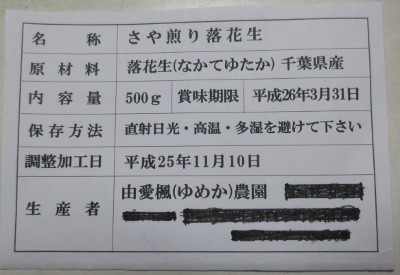 名称 さや煎り落花生
原材料 落花生(なかてゆたか) 千葉県産
内容量 500g 賞味期限 平成26年3月31日
保存方法 直射日光・高温・多湿を避けて下さい
調整加工日 平成25年11月10日
生産者 由愛楓(ゆめか)農園